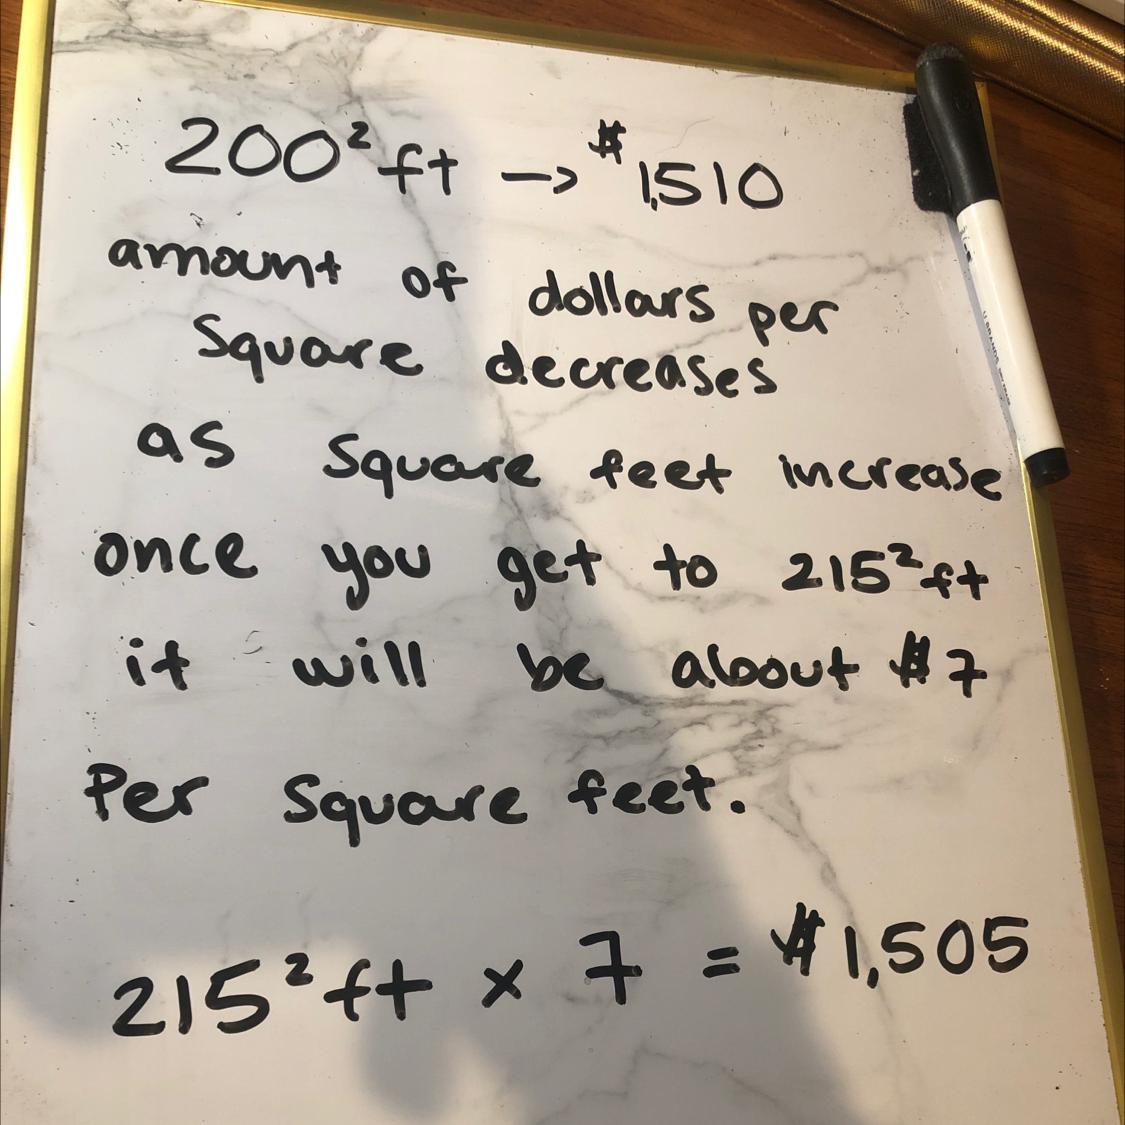 200² ft → $1,510
amount of dollars per
square decreases
as square feet increase
once you get to 215² ft
it will be about $7
Per square feet.
215² ft × 7 = $1,505